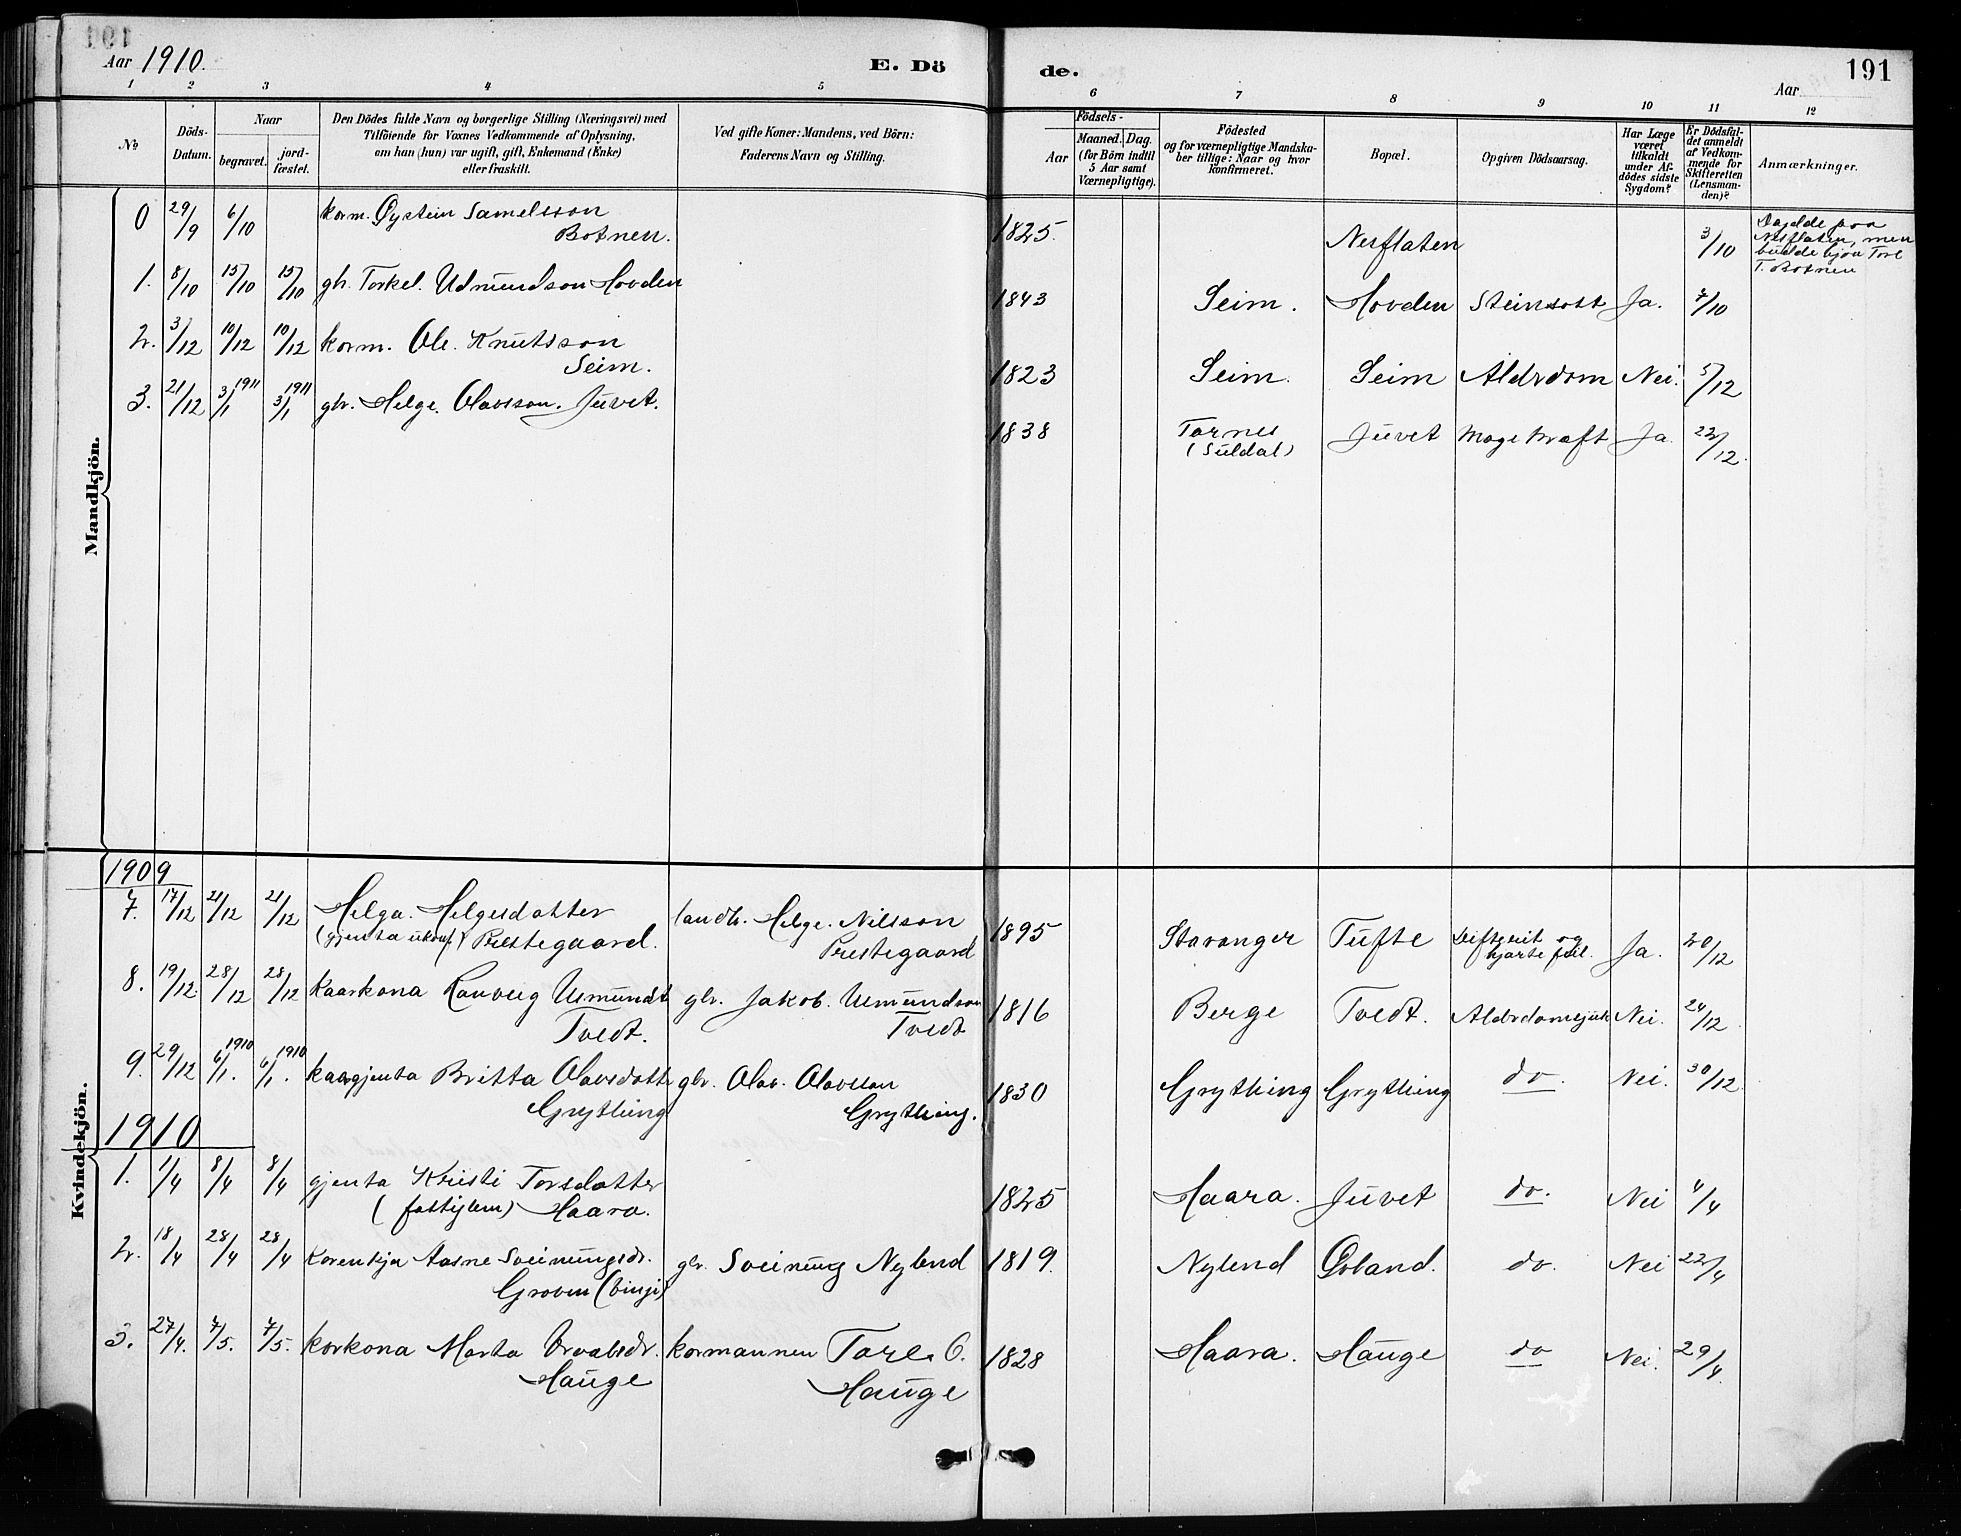 191
Aar 1910. E. Dö de. Aar 191
1 2 3 4 5 6 7 8 9 10 11 12
№
Döds-
Datum.
Naar
begravet.
jord-
fæstet.
Den Dödes fulde Navn og borgerlige Stilling (Næringsvei) med
Tilföiende for Voxnes Vedkommende af Oplysning,
om han (hun) var ugift, gift, Enkemand (Enke)
eller fraskilt.
Ved gifte Koner: Mandens, ved Börn:
Faderens Navn og Stilling.
Födsels-
Aar
Maaned. Dag.
(for Börn indtil
5 Aar samt
Værnepligtige).
Födested
og for værnepligtige Mandska-
ber tillige: Naar og hvor
konfirmeret.
Bopæl.
Opgiven Dödsaarsag.
Har Læge
været
tilkaldt
under Af-
dödes sidste
Sygdom?
Er Dödsfal-
det anmeldt
af Vedkom-
mende for
Skifteretten
(Lensman-
den)?
Anmærkninger.
Mandkjön.
0 29/9 6/10 korm. Øystein Samelsson
Botnen. 1825. Nesflaten 3/10
Døydde paa
Nesflaten, men
budde hjaa Tore
T. Botnen
1. 8/10 15/10 15/10 gbr. Torkel. Udmundson Hovden 1843 Seim. Hovden Steinsott Ja. 7/10
2. 3/12 10/12 10/12 korm. Ole. Knutsson
Seim. 1823 Seim. Seim Alderdom Nei. 5/12
3. 21/12 3/1 1911 3/1 1911 gbr. Helge. Olavsson. Juvet. 1838 Tornes
(Suldal) Juvet Magekræft Ja. 22/12.
Kvindekjön.
1909
7. 17/12 21/12 21/12 Helga. Helgesdotter
(gjenta ukonf) Prestegaard. landh. Helge. Nilsson
Prestegaard 1895 Stavanger Tufte Difterit og
hjarte feil. Ja. 20/12
8. 19/12 28/12 28/12 Kaarkona Ranveig Asmundt
Tvedt. gbr. Jakob. Asmundson
Tvedt 1816 Berge Tvedt. Alderdomsjuk Nei. 24/12
9. 29/12 6/1. 1910 6/1. 1910 kaargjenta Britta Olavsdott
Grything gbr. Olav. Olavsson
Grything. 1830 Grything Grything do. Nei. 30/12
1910
1. 1/4 8/4 8/4 gjenta Kristi Torsdotter
(fattiglem) Haara. 1825 Haara. Juvet do. Nei 4/4
2. 18/4 28/4 28/4 Korenkja Aasne Sveinungsdr.
Groven gbr. Sveinung Nylend 1819. Nylend do. Nei 22/4
3. 27/4. 7/5. 7/5. korkona Marta
Hauge kormannen Tore O.
Hauge 1828 Haara. Hauge do Nei. 29/4.